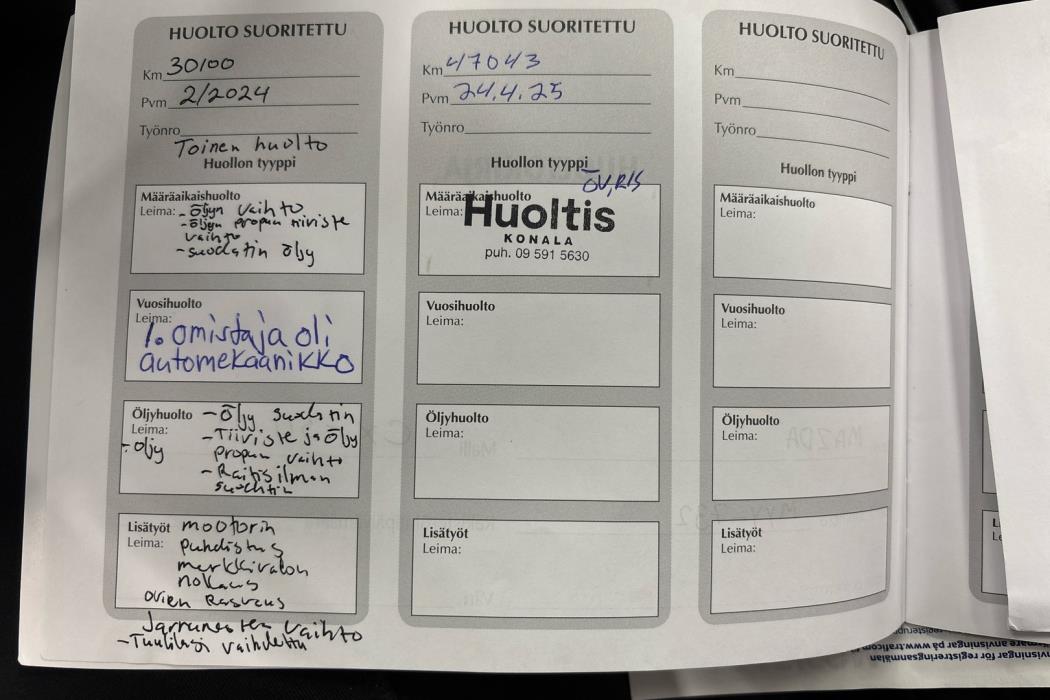 HUOLTO SUORITETTU
Km 30100
Pvm 2/2024
Työnro
Toinen huolto
Huollon tyyppi
Määräaikaishuolto
Leima: - öljyn vaihto
- öljyn propun tiiviste
vaihto
- suodatin öljy
Vuosihuolto
Leima:
1. omistaja oli
automekaanikko
Öljyhuolto - Öljy suodatin
Leima: - Tiiviste ja öljy
- öljy propun vaihto
- Raitisilman
suodatin
Lisätyöt moottorin
Leima: puhdistus
merkkivalon
nollaus
ovien Rasvaus
Jarrunesteen vaihto
- Tuulilasi vaihdettu
HUOLTO SUORITETTU
Km 47043
Pvm 24.4.25
Työnro
Huollon tyyppi
ÖV, RIS
Määräaikaishuolto
Leima:
Huoltis
KONALA
puh. 09 591 5630
Vuosihuolto
Leima:
Öljyhuolto
Leima:
Lisätyöt
Leima:
HUOLTO SUORITETTU
Km
Pvm
Työnro
Huollon tyyppi
Määräaikaishuolto
Leima:
Vuosihuolto
Leima:
Öljyhuolto
Leima:
Lisätyöt
Leima: